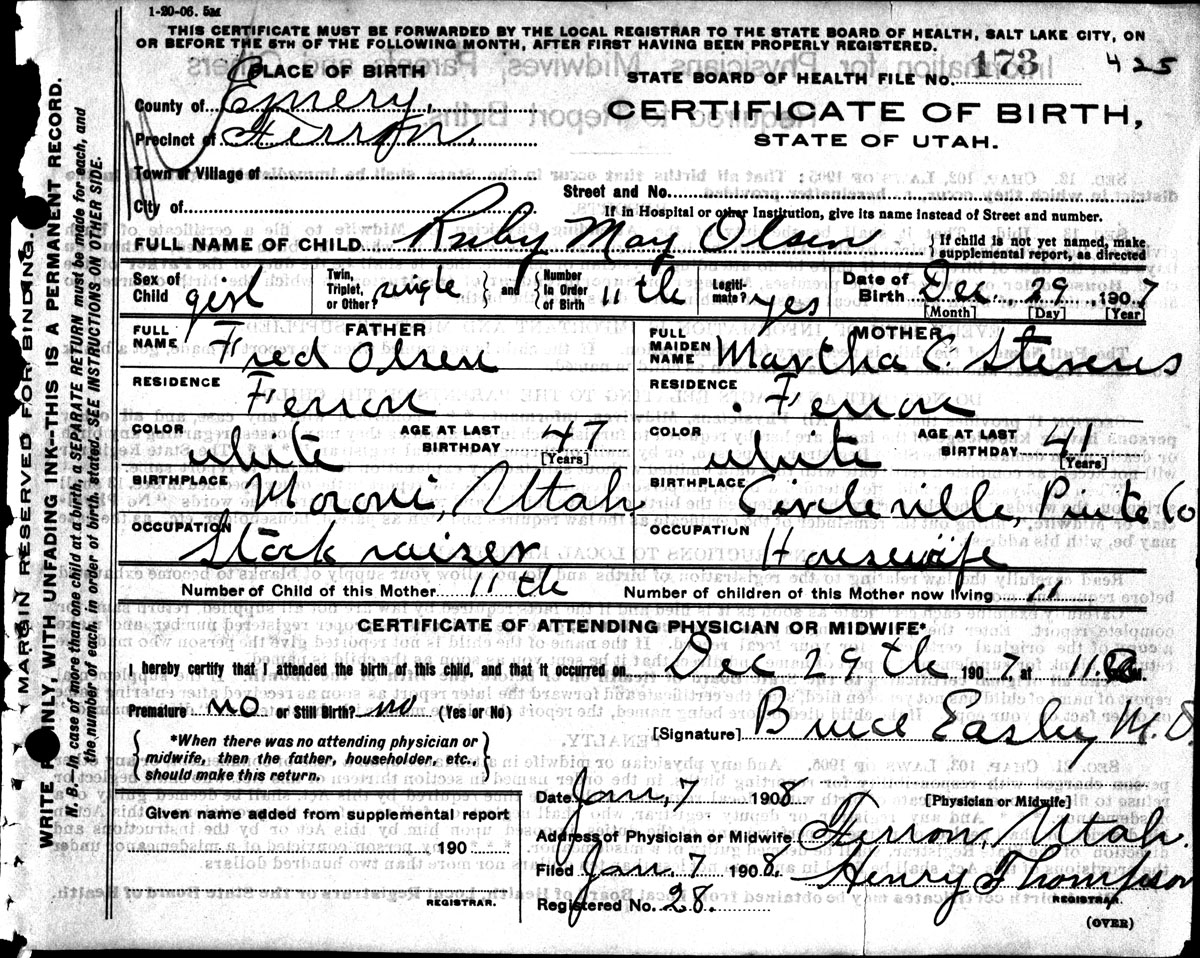 1-20-06. 5M
THIS CERTIFICATE MUST BE FORWARDED BY THE LOCAL REGISTRAR TO THE STATE BOARD OF HEALTH, SALT LAKE CITY, ON
OR BEFORE THE 5TH OF THE FOLLOWING MONTH, AFTER FIRST HAVING BEEN PROPERLY REGISTERED.
PLACE OF BIRTH
STATE BOARD OF HEALTH FILE No. 173 425
County of Emery,
CERTIFICATE OF BIRTH,
Precinct of Ferron,
STATE OF UTAH.
Town of Village of
Street and No.
City of
If in Hospital or other Institution, give its name instead of Street and number.
FULL NAME OF CHILD Ruby May Olsen
{ If child is not yet named, make
supplemental report, as directed
Sex of Child girl
Twin, Triplet, or Other? single } and { Number In Order of Birth 11th
Legiti-mate? yes
Date of Birth Dec., 29, 1907
[Month] [Day] [Year]
FATHER
FULL NAME Fred Olsen
MOTHER
FULL MAIDEN NAME Martha C. Stevens
RESIDENCE Ferron
RESIDENCE Ferron
COLOR white AGE AT LAST BIRTHDAY 47 [Years]
COLOR white AGE AT LAST BIRTHDAY 41 [Years]
BIRTHPLACE Moroni, Utah
BIRTHPLACE Circleville, Piute Co
OCCUPATION Stock raiser
OCCUPATION Housewife
Number of Child of this Mother 11th Number of children of this Mother now living 11
CERTIFICATE OF ATTENDING PHYSICIAN OR MIDWIFE*
I hereby certify that I attended the birth of this child, and that it occurred on Dec 29th 1907, at 11. M.
Premature no or Still Birth? no (Yes or No)
[Signature] Bruce Easley M.D.
{ *When there was no attending physician or
midwife, then the father, householder, etc.,
should make this return. }
Date Jan, 7 1908 [Physician or Midwife]
Given name added from supplemental report
Address of Physician or Midwife Ferron, Utah.
190
Filed Jan 7 1908. Henry F Thompson
REGISTRAR.
REGISTRAR.
Registered No. 28.
(OVER)
MARGIN RESERVED FOR BINDING.
WRITE PLAINLY, WITH UNFADING INK--THIS IS A PERMANENT RECORD.
N. B. In case of more than one child at a birth, a SEPARATE RETURN must be made for each, and
the number of each, in order of birth, stated. SEE INSTRUCTIONS ON OTHER SIDE.